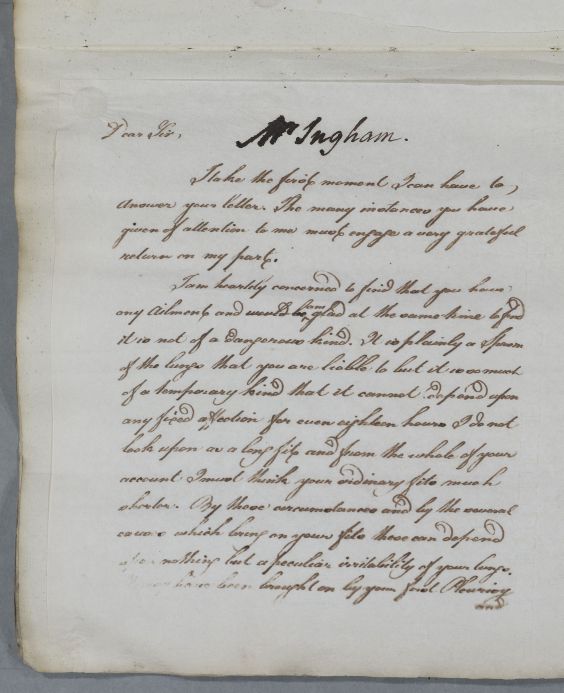 Dear Sir,
Mr Ingham.
I take the first moment I can have to
answer your letter. The many instances you have
given of attention to me must engage a very grateful
return on my part.
I am heartily concerned to find that you have
any Ailment and would be am glad at the same time to find
it is not of a dangerous kind. It is plainly a Spasm
of the lungs that you are liable to but it is so much
of a temporary kind that it cannot depend upon
any fixed affection for even eighteen hours I do not
look upon as a long fit and from the whole of your
account I must think your ordinary fits much
shorter. By these circumstances and by the several
causes which bring on your fits these can depend
upon nothing but a peculiar irritability of your lungs.
have been brought on by your first Pleurisy
and